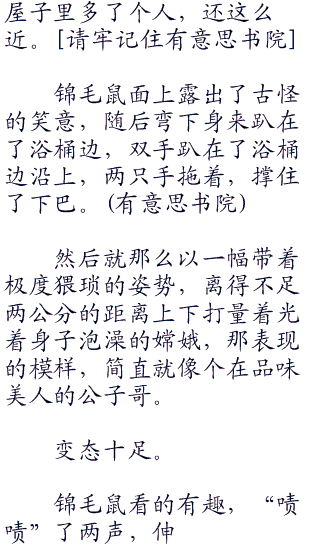 屋子里多了个人，还这么
近。[请牢记住有意思书院]
锦毛鼠面上露出了古怪
的笑意，随后弯下身来趴在
了浴桶边，双手趴在了浴桶
边沿上，两只手拖着，撑住
了下巴。(有意思书院)
然后就那么以一幅带着
极度猥琐的姿势，离得不足
两公分的距离上下打量着光
着身子泡澡的嫦娥，那表现
的模样，简直就像个在品味
美人的公子哥。
变态十足。
锦毛鼠看的有趣，“啧
啧”了两声，伸